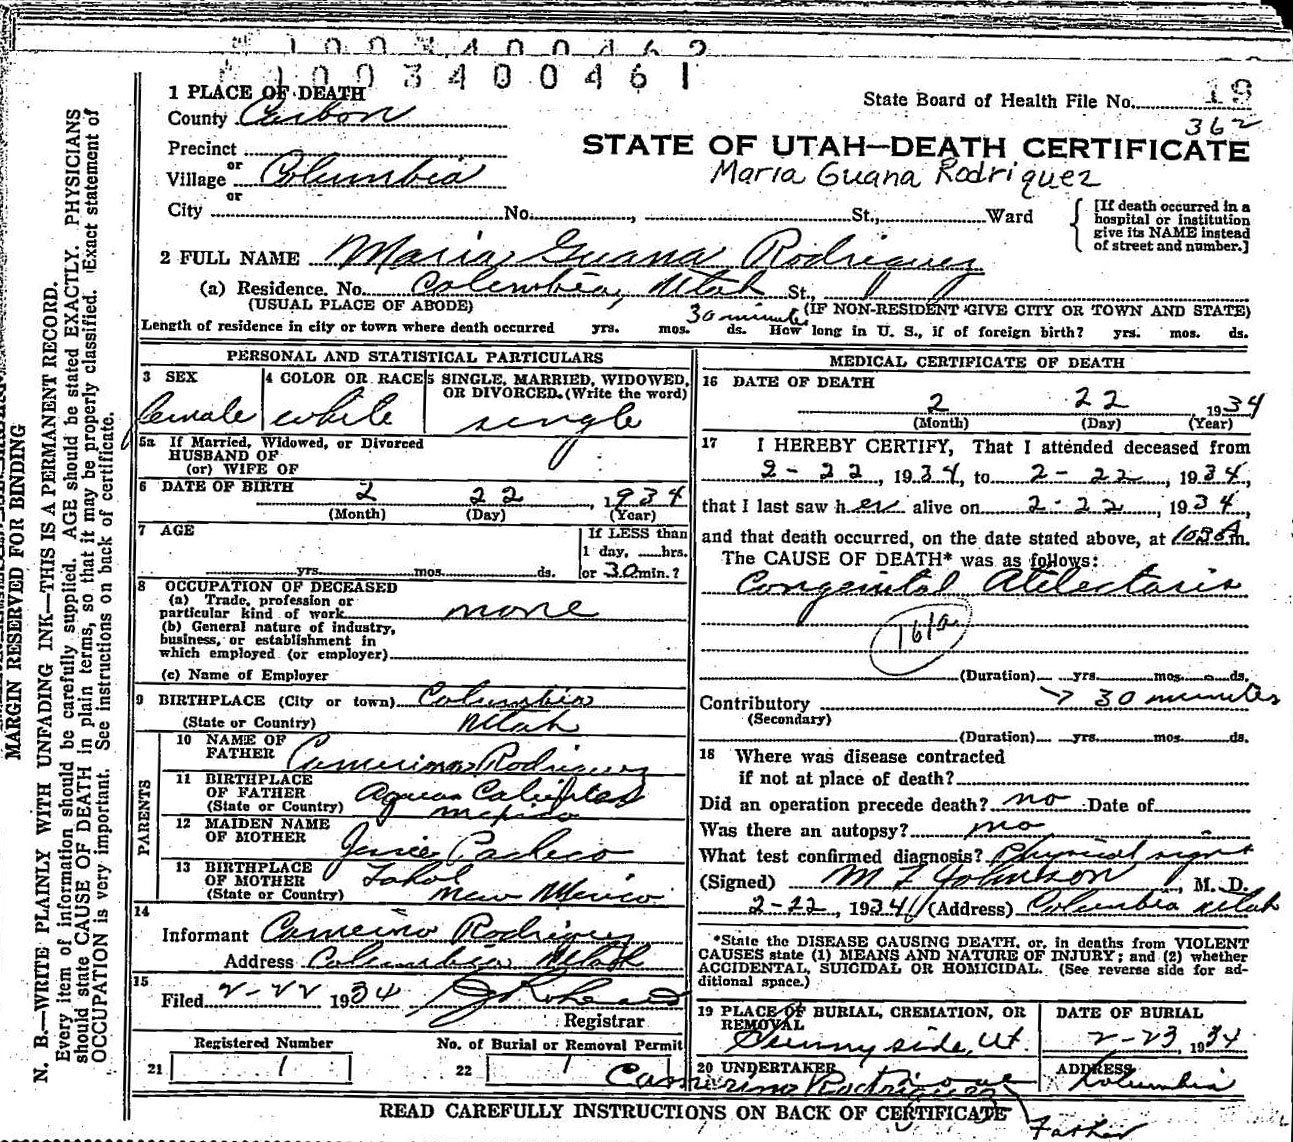 1003400462
1003400461
1 PLACE OF DEATH
County Carbon
State Board of Health File No. 19
362
STATE OF UTAH—DEATH CERTIFICATE
Maria Guana Rodriquez
Precinct
or
Village Columbia
or
City No. , St., Ward
[If death occurred in a
hospital or institution
give its NAME instead
of street and number.]
2 FULL NAME Maria Guana Rodriguez
(a) Residence. No. Columbia, Utah St.,
(USUAL PLACE OF ABODE) (IF NON-RESIDENT GIVE CITY OR TOWN AND STATE)
30 minutes
Length of residence in city or town where death occurred yrs. mos. ds. How long in U. S., if of foreign birth? yrs. mos. ds.
PERSONAL AND STATISTICAL PARTICULARS
3 SEX
female
4 COLOR OR RACE
white
5 SINGLE, MARRIED, WIDOWED,
OR DIVORCED. (Write the word)
single
5a If Married, Widowed, or Divorced
HUSBAND OF
(or) WIFE OF
6 DATE OF BIRTH 2 22 , 1934
(Month) (Day) (Year)
7 AGE
yrs. mos. ds.
If LESS than
1 day, hrs.
or 30 min.?
8 OCCUPATION OF DECEASED
(a) Trade, profession or
particular kind of work none
(b) General nature of industry,
business, or establishment in
which employed (or employer)
(c) Name of Employer
9 BIRTHPLACE (City or town) Columbia
(State or Country) Utah
PARENTS
10 NAME OF
FATHER Camerino Rodriguez
11 BIRTHPLACE
OF FATHER Aguas Calientes
(State or Country) Mexico
12 MAIDEN NAME
OF MOTHER Pacheco
13 BIRTHPLACE
OF MOTHER
(State or Country) New Mexico
14
Informant Camerino Rodriguez
Address Columbia Utah
15
Filed 2-22 1934
Registrar
Registered Number
21 1
No. of Burial or Removal Permit
22 1
MEDICAL CERTIFICATE OF DEATH
16 DATE OF DEATH
2 22 1934
(Month) (Day) (Year)
17 I HEREBY CERTIFY, That I attended deceased from
2-22, 1934, to 2-22, 1934,
that I last saw her alive on 2-22, 1934,
and that death occurred, on the date stated above, at 1030 A m.
The CAUSE OF DEATH* was as follows:
Congenital Atelectasis
161a
(Duration) yrs. mos. ds.
Contributory 30 minutes
(Secondary)
(Duration) yrs. mos. ds.
18 Where was disease contracted
if not at place of death?
Did an operation precede death? no Date of
Was there an autopsy? no
What test confirmed diagnosis? Physical signs
(Signed) M T Johnson, M. D.
2-22, 1934 (Address) Columbia Utah
*State the DISEASE CAUSING DEATH, or, in deaths from VIOLENT
CAUSES state (1) MEANS AND NATURE OF INJURY; and (2) whether
ACCIDENTAL, SUICIDAL OR HOMICIDAL. (See reverse side for ad-
ditional space.)
19 PLACE OF BURIAL, CREMATION, OR
REMOVAL
Sunnyside, Ut.
DATE OF BURIAL
2-23, 1934
20 UNDERTAKER none
Camerino Rodriguez
Father
ADDRESS
Columbia
READ CAREFULLY INSTRUCTIONS ON BACK OF CERTIFICATE
MARGIN RESERVED FOR BINDING
N. B.—WRITE PLAINLY WITH UNFADING INK—THIS IS A PERMANENT RECORD.
Every item of information should be carefully supplied. AGE should be stated EXACTLY. PHYSICIANS
should state CAUSE OF DEATH in plain terms, so that it may be properly classified. Exact statement of
OCCUPATION is very important. See instructions on back of certificate.